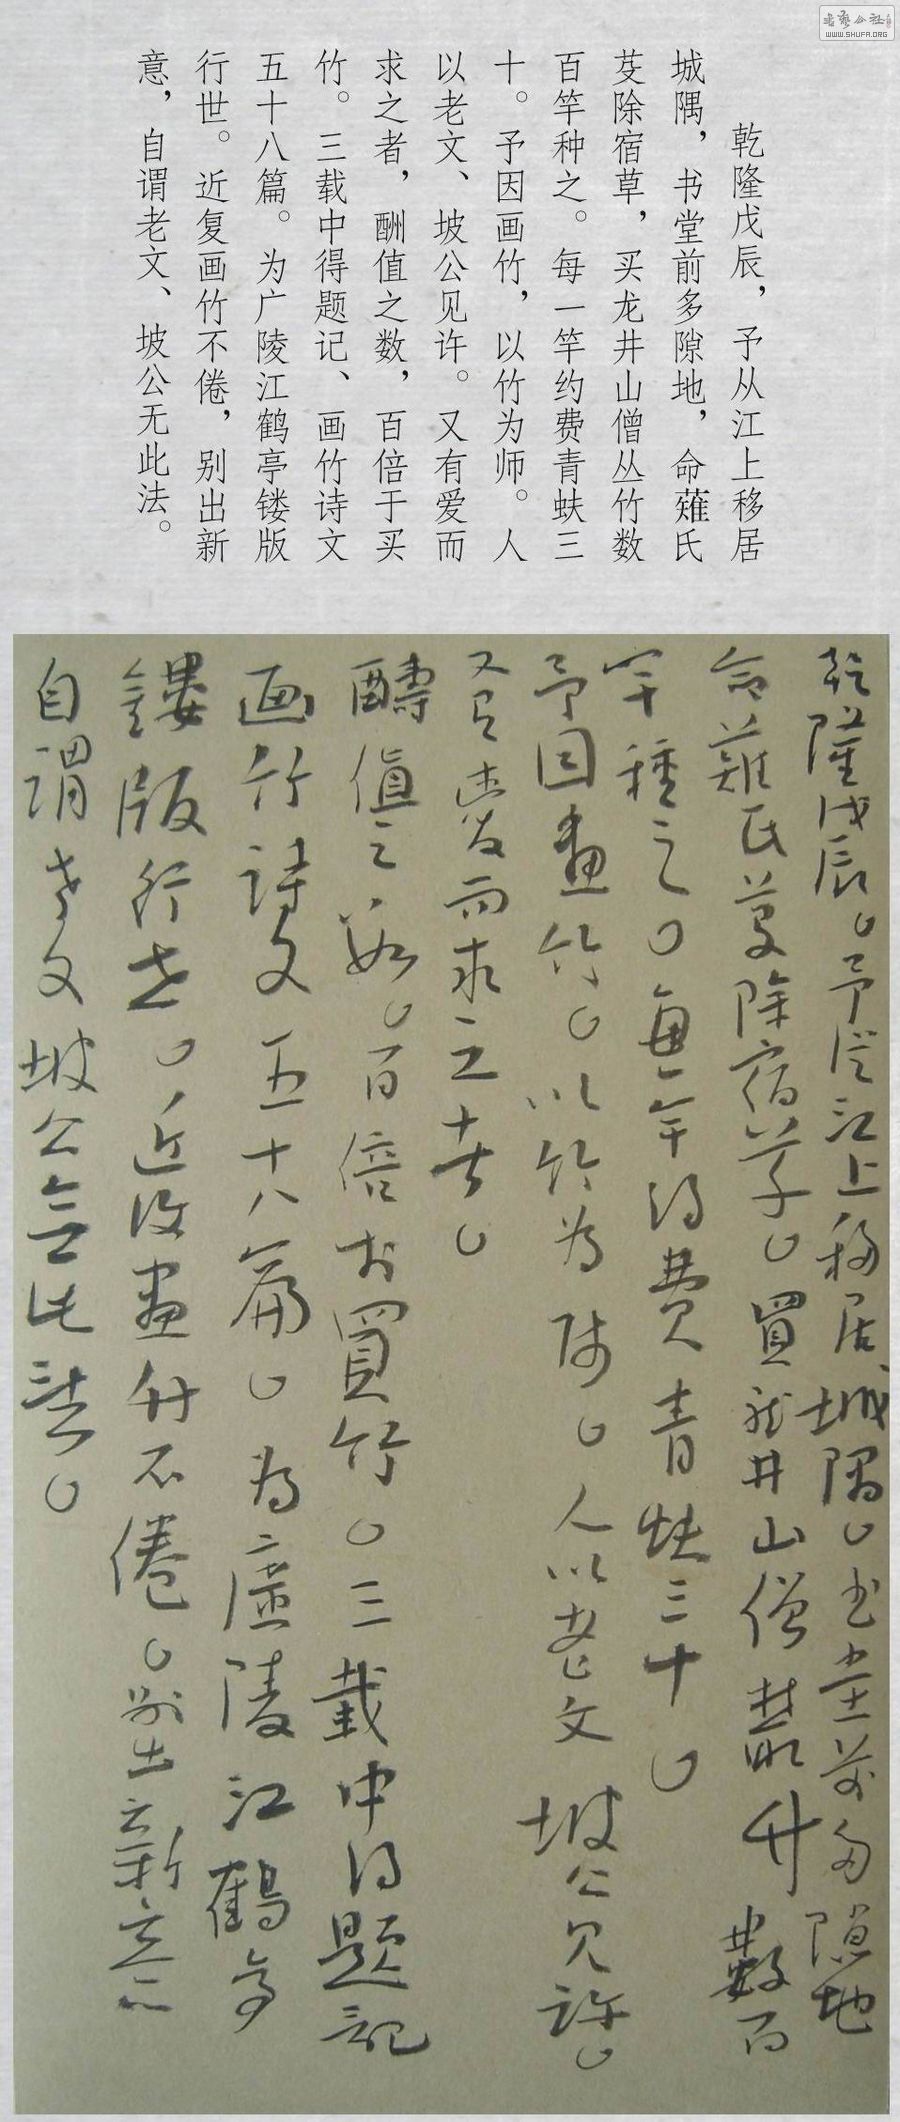 書藝公社
WWW.SHUFA.ORG
乾隆戊辰，予从江上移居
城隅，书堂前多隙地，命薙氏
芟除宿草，买龙井山僧丛竹数
百竿种之。每一竿约费青蚨三
十。予因画竹，以竹为师。人
以老文、坡公见许。又有爱而
求之者，酬值之数，百倍于买
竹。三载中得题记、画竹诗文
五十八篇。为广陵江鹤亭镂版
行世。近复画竹不倦，别出新
意，自谓老文、坡公无此法。
乾隆戊辰。予從江上移居城隅。书堂前多隙地
命薙氏芟除宿草。買龙井山僧叢竹數百
竿種之。每一竿约費青蚨三十。
予因畫竹。以竹为师。人以老文坡公见許。
又有爱而求之者。
醻值之数。百倍于買竹。三載中得題記
画竹詩文五十八篇。为廣陵江鶴亭
鏤版行世。近復畫竹不倦。别出新意
自謂老文坡公無此法。